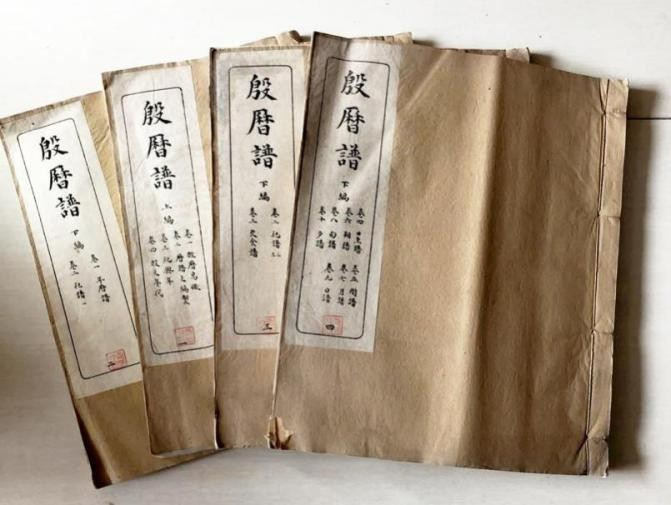 殷曆譜
下編
卷一 年曆譜
卷二 祀譜一
二
殷曆譜
上編
卷一 殷曆鳥瞰
卷二 曆譜之編製
卷三 祀與年
卷四 殷之年代
一
殷曆譜
下編
卷二 祀譜二三
卷三 交食譜
三
殷曆譜
下編
卷四 日至譜 卷五 閏譜
卷六 朔譜 卷七 月譜
卷八 旬譜 卷九 日譜
卷十 夕譜
四